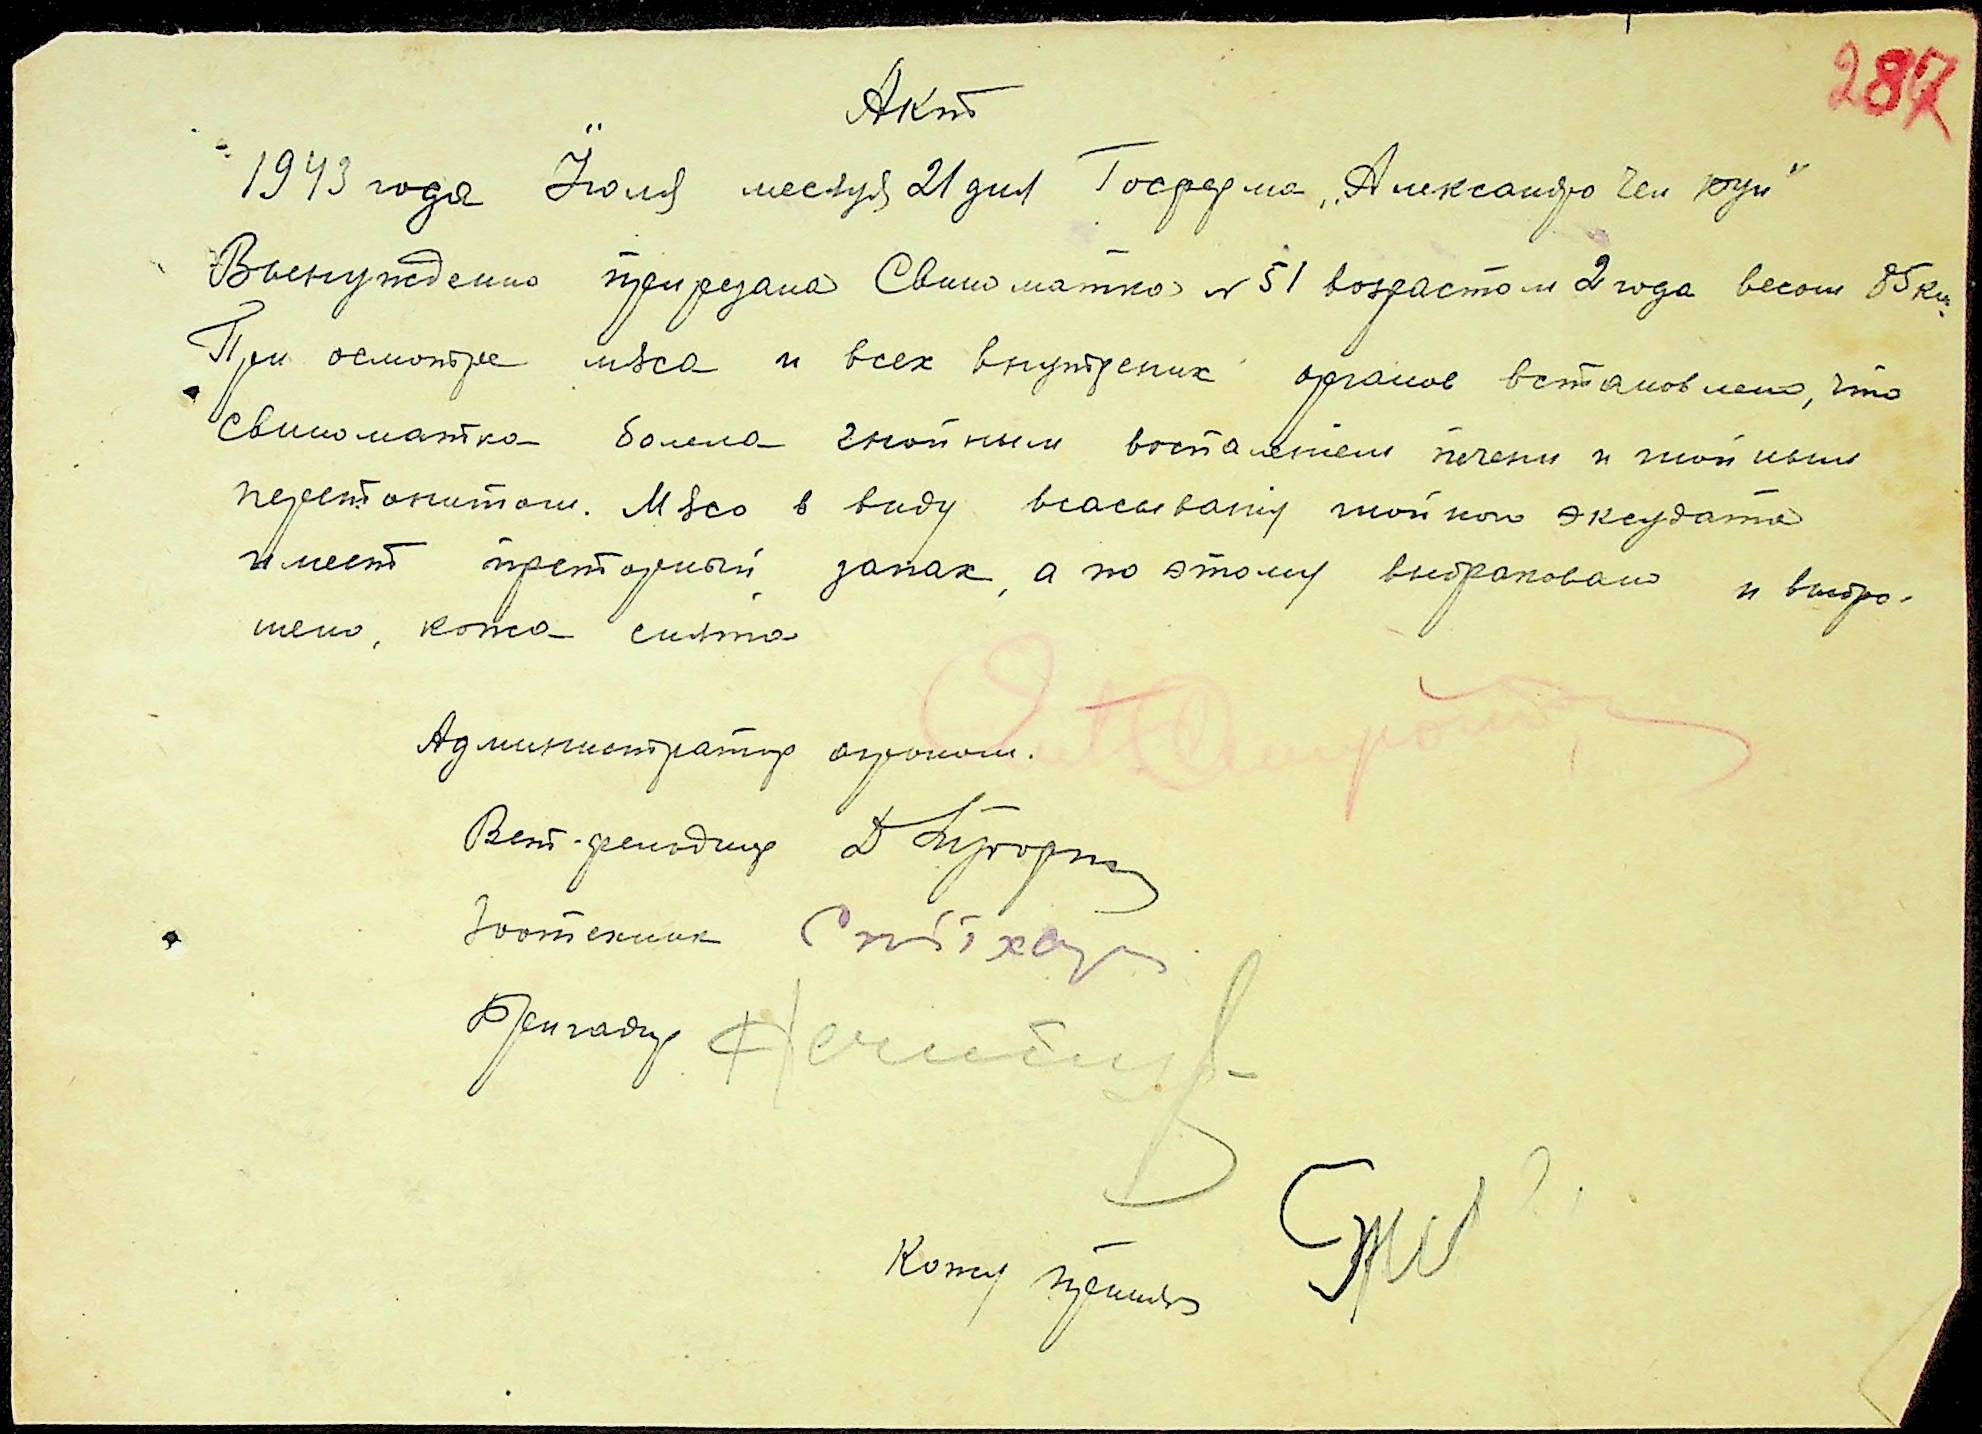 287
Акт
1943 года Июля месяця 21 дня Госферма „Александро
Вынуждено прирезана Свиноматка № 51 возрастом 2 года весом 85 кг.
При осмотре мяса и всех внутрених органов встановлено, что
свиноматка болела гнойным воспалением печени и гнойным
перетонитом. Мясо в виду всасывания гнойного эксудата
имеет преторный запах, а по этому выбраковано и выбро-
шено, кожа снята
Администратор агроном.
Вет-фельдшер
Зоотехник
Бригадир
Кожу принял